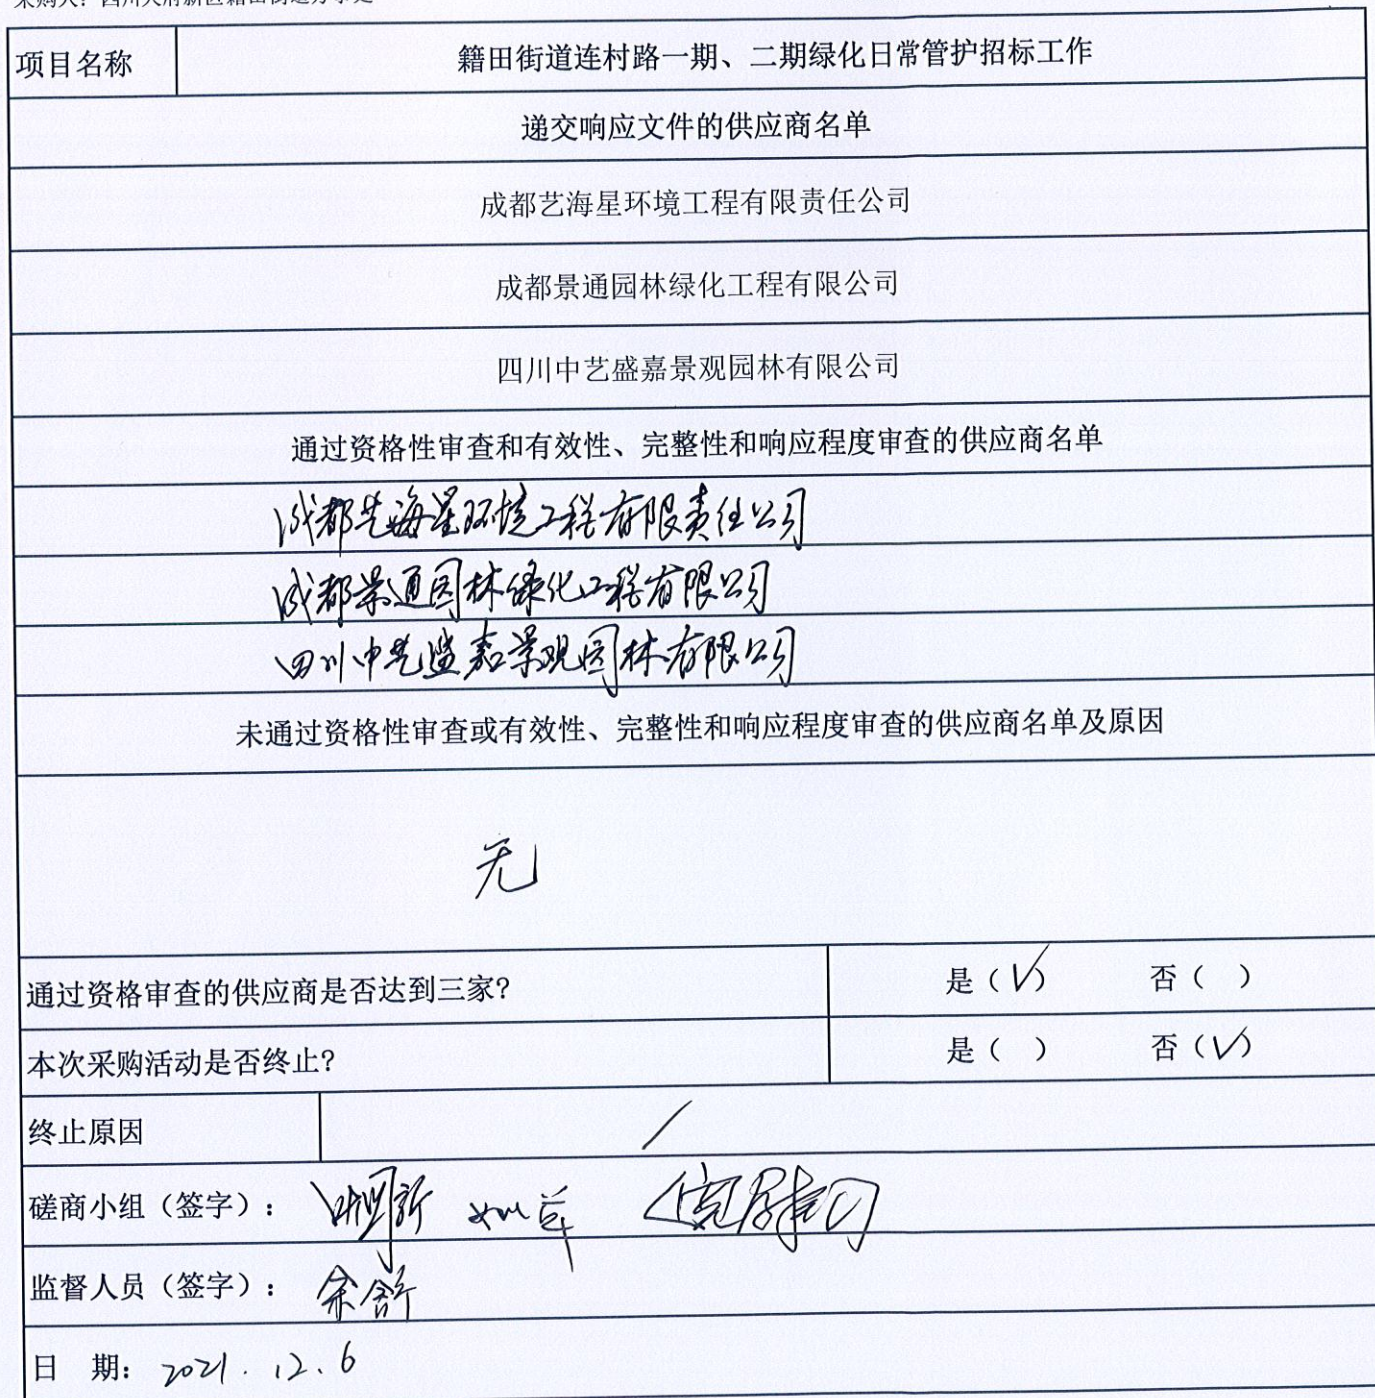 项目名称
籍田街道连村路一期、二期绿化日常管护招标工作
递交响应文件的供应商名单
成都艺海星环境工程有限责任公司
成都景通园林绿化工程有限公司
四川中艺盛嘉景观园林有限公司
通过资格性审查和有效性、完整性和响应程度审查的供应商名单
成都艺海星环境工程有限责任公司
成都景通园林绿化工程有限公司
四川中艺盛嘉景观园林有限公司
未通过资格性审查或有效性、完整性和响应程度审查的供应商名单及原因
无
通过资格审查的供应商是否达到三家? 是（√） 否（ ）
本次采购活动是否终止? 是（ ） 否（√）
终止原因 /
磋商小组（签字）：
监督人员（签字）： 余舒
日 期: 2021.12.6